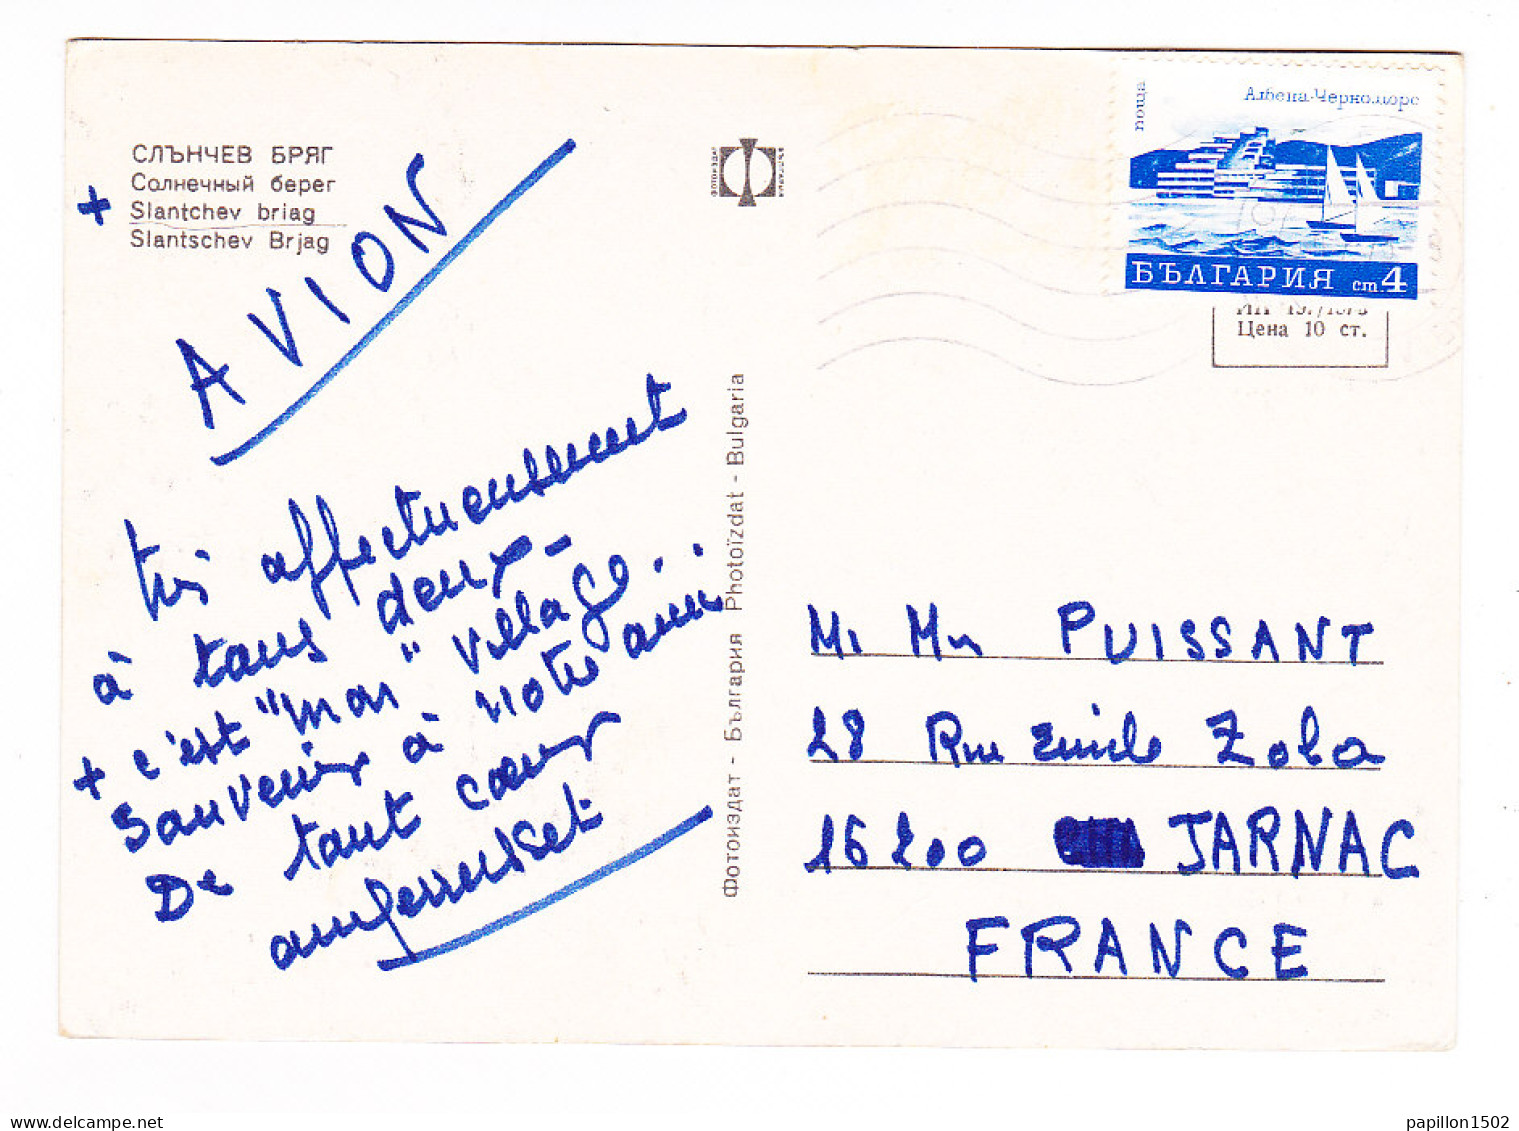 СЛЪНЧЕВ БРЯГ
Солнечный берег
+ Slantchev briag
Slantschev Brjag
AVION
très affectueusement
à tous deux-
+ c'est "mon" village..
Souvenirs à notre ami
De tout cœur
Фотоиздат - България Photoïzdat - Bulgaria
ФОТОИЗДАТ
поща
Албена-Черноморс
БЪЛГАРИЯ ст 4
Цена 10 ст.
M. Mme PUISSANT
28 Rue Emile Zola
16200 JARNAC
FRANCE
delcampe.net
papillon1502